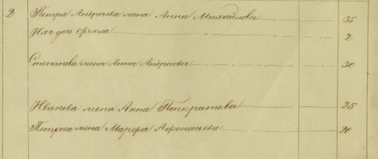 2 Петра Андреева жена Анна Михайлова 35
Ихъ дочь 2
Степанова жена Анна Андреева 30
Иванова жена Анна Панкратова 25
Петрова жена Марфа Афонасьева 20